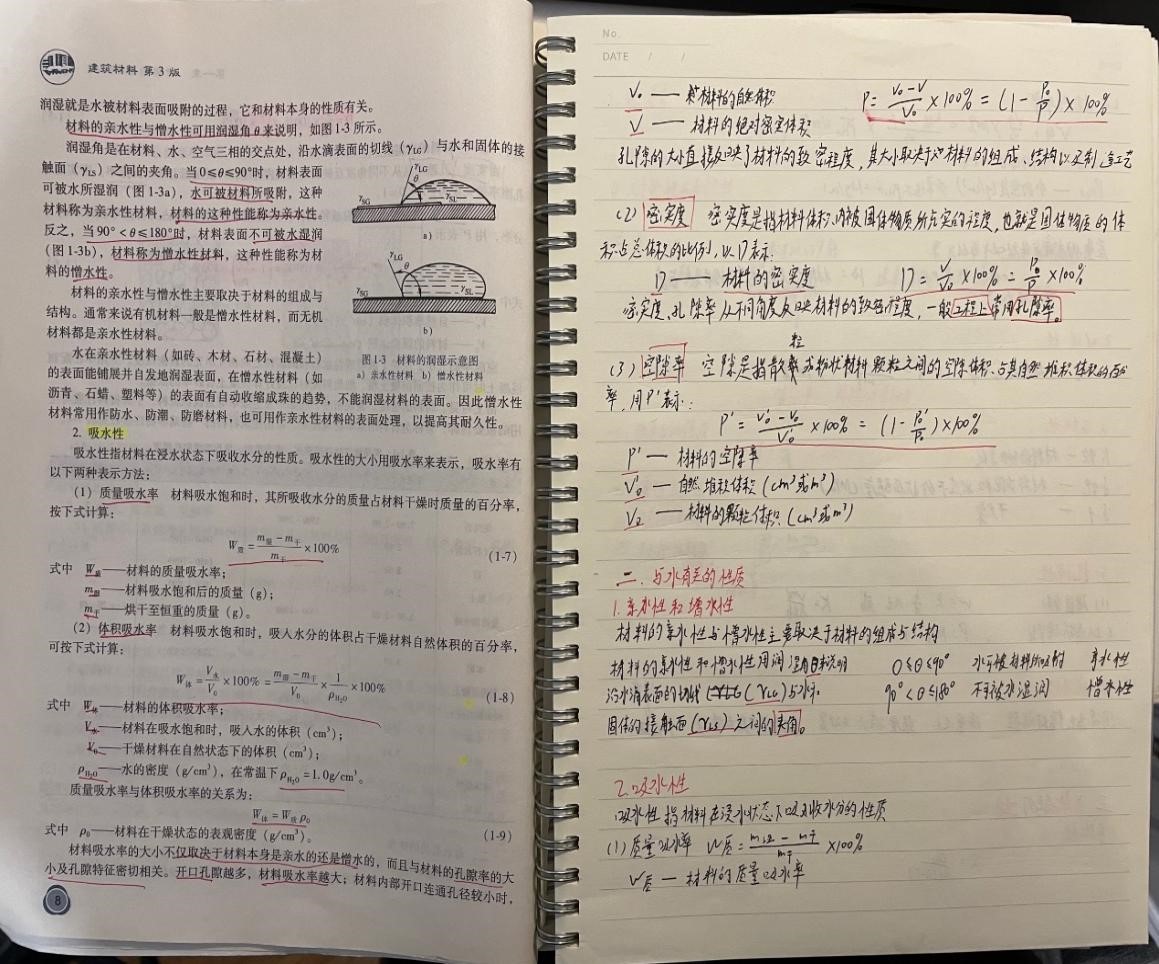 建筑材料 第3版
润湿就是水被材料表面吸附的过程，它和材料本身的性质有关。
材料的亲水性与憎水性可用润湿角θ来说明，如图1-3所示。
润湿角是在材料、水、空气三相的交点处，沿水滴表面的切线（γLG）与水和固体的接
触面（γLS）之间的夹角。当0≤θ≤90°时，材料表面
可被水所湿润（图1-3a），水可被材料所吸附，这种
材料称为亲水性材料，材料的这种性能称为亲水性。
反之，当90°<θ≤180°时，材料表面不可被水湿润
（图1-3b），材料称为憎水性材料，这种性能称为材
料的憎水性。
材料的亲水性与憎水性主要取决于材料的组成与
结构。通常来说有机材料一般是憎水性材料，而无机
材料都是亲水性材料。
水在亲水性材料（如砖、木材、石材、混凝土）
的表面能铺展并自发地润湿表面，在憎水性材料（如
沥青、石蜡、塑料等）的表面有自动收缩成珠的趋势，不能润湿材料的表面。因此憎水性
材料常用作防水、防潮、防磨材料，也可用作亲水性材料的表面处理，以提高其耐久性。
γLG
θ
γSG
γSL
a）
γLG
θ
γSG
γSL
b）
图1-3 材料的润湿示意图
a）亲水性材料 b）憎水性材料
2. 吸水性
吸水性指材料在浸水状态下吸收水分的性质。吸水性的大小用吸水率来表示，吸水率有
以下两种表示方法：
（1）质量吸水率 材料吸水饱和时，其所吸收水分的质量占材料干燥时质量的百分率，
按下式计算：
W质 = (m湿 − m干)/m干 ×100% (1-7)
式中 W质——材料的质量吸水率；
m湿——材料吸水饱和后的质量（g）；
m干——烘干至恒重的质量（g）。
（2）体积吸水率 材料吸水饱和时，吸入水分的体积占干燥材料自然体积的百分率，
可按下式计算：
W体 = V水/V0 ×100% = (m湿 − m干)/V0 × 1/ρH2O ×100% (1-8)
式中 W体——材料的体积吸水率；
V水——材料在吸水饱和时，吸入水的体积（cm³）；
V0——干燥材料在自然状态下的体积（cm³）；
ρH2O——水的密度（g/cm³），在常温下ρH2O=1.0g/cm³。
质量吸水率与体积吸水率的关系为：
W体 = W质 ρ0 (1-9)
式中 ρ0——材料在干燥状态的表观密度（g/cm³）。
材料吸水率的大小不仅取决于材料本身是亲水的还是憎水的，而且与材料的孔隙率的大
小及孔隙特征密切相关。开口孔隙越多，材料吸水率越大；材料内部开口连通孔径较小时，
8
No.
DATE / /
V0 —— 材料的自然体积 P = (V0−V)/V0 ×100% = (1−ρ0/ρ)×100%
V —— 材料的绝对密实体积
孔隙的大小直接反映了材料的致密程度，其大小取决于材料的组成、结构以及制造工艺
(2) 密实度 密实度是指材料体积内被固体物质所充实的程度，也就是固体物质的体
积占总体积的比例，以D表示.
D —— 材料的密实度 D = V/V0 ×100% = ρ0/ρ ×100%
密实度、孔隙率从不同角度反映材料的致密程度，一般工程上常用孔隙率。
(3) 空隙率 空隙是指散粒或粉状材料颗粒之间的空隙体积与其自然堆积体积的百分
率，用P'表示：
P' = (V0'−V0)/V0' ×100% = (1−ρ0'/ρ0)×100%
P' — 材料的空隙率
V0' — 自然堆积体积 (cm³或m³)
V2 — 材料的颗粒体积 (cm³或m³)
二、与水有关的性质
1.亲水性和憎水性
材料的亲水性与憎水性主要取决于材料的组成与结构
材料的亲水性和憎水性用润湿角θ来说明 0≤θ≤90° 水可被材料所吸附 亲水性
沿水滴表面的切线(γLG)与水和 90°<θ≤180° 不可被水湿润 憎水性
固体的接触面(γLS)之间的夹角。
2.吸水性
吸水性指材料在浸水状态下吸收水分的性质
(1)质量吸水率 W质 = (m湿 − m干)/m干 ×100%
W质 — 材料的质量吸水率